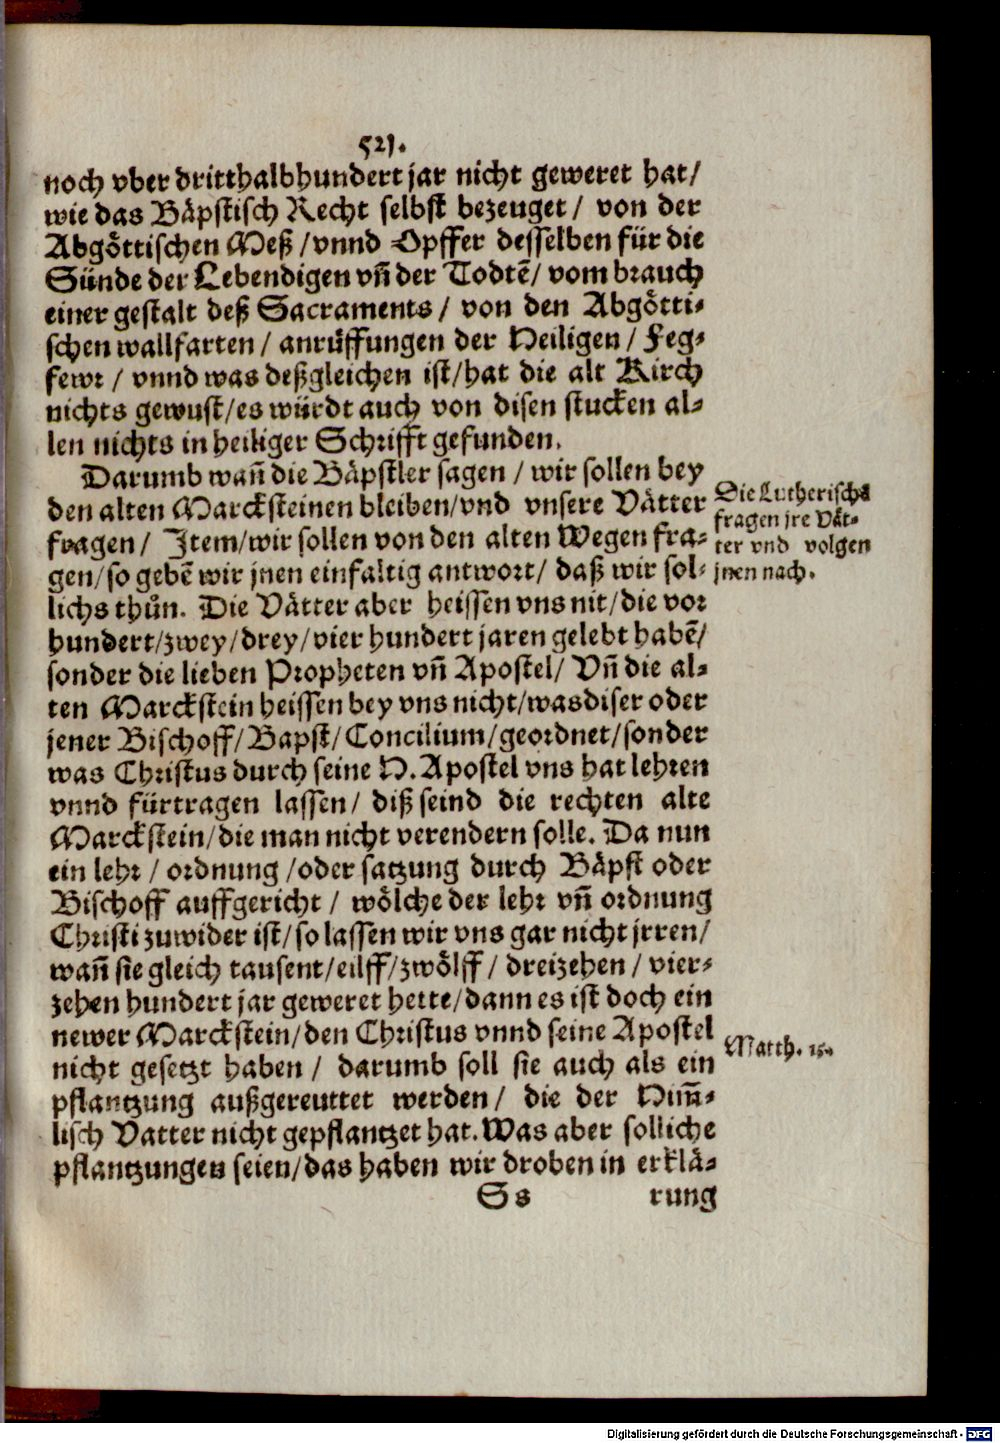 521.
noch vber dritthalbhundert jar nicht geweret hat/
wie das Bäpstisch Recht selbst bezeuget/ von der
Abgöttischen Meß/vnnd Opffer desselben für die
Sünde der Lebendigen vñ der Todtē/ vom brauch
einer gestalt deß Sacraments/ von den Abgötti-
schen wallfarten/ anrüffungen der Heiligen/ Feg-
fewr/ vnnd was deßgleichen ist/hat die alt Kirch
nichts gewust/es würdt auch von disen stucken al-
len nichts in heiliger Schrifft gefunden.
Darumb wañ die Bäpstler sagen/ wir sollen bey
den alten Marcksteinen bleiben/vnd vnsere Vätter
fragen/ Item/wir sollen von den alten Wegen fra-
gen/so gebē wir jnen einfaltig antwort/ daß wir sol-
lichs thůn. Die Vätter aber heissen vns nit/die vor
hundert/zwey/drey/vier hundert jaren gelebt habē/
sonder die lieben Propheten vñ Apostel/ Vñ die al-
ten Marckstein heissen bey vns nicht/was diser oder
jener Bischoff/Bapst/Concilium/geordnet/sonder
was Christus durch seine H. Apostel vns hat lehren
vnnd fürtragen lassen/ diß seind die rechten alte
Marckstein/die man nicht verendern solle. Da nun
ein lehr/ ordnung/oder satzung durch Bäpst oder
Bischoff auffgericht/ wölche der lehr vñ ordnung
Christi zuwider ist/so lassen wir vns gar nicht jrren/
wañ sie gleich tausent/eilff/zwölff/ dreizehen/ vier-
zehen hundert jar geweret hette/dann es ist doch ein
newer Marckstein/den Christus vnnd seine Apostel
nicht gesetzt haben/ darumb soll sie auch als ein
pflantzung außgereuttet werden/ die der Himm̃-
lisch Vatter nicht gepflantzet hat. Was aber solliche
pflantzungen seien/das haben wir droben in erklä-
Ss rung
Die Lutherischē
fragen jre Vät-
ter vnd volgen
jnen nach.
Matth. 15.
Digitalisierung gefördert durch die Deutsche Forschungsgemeinschaft - DFG